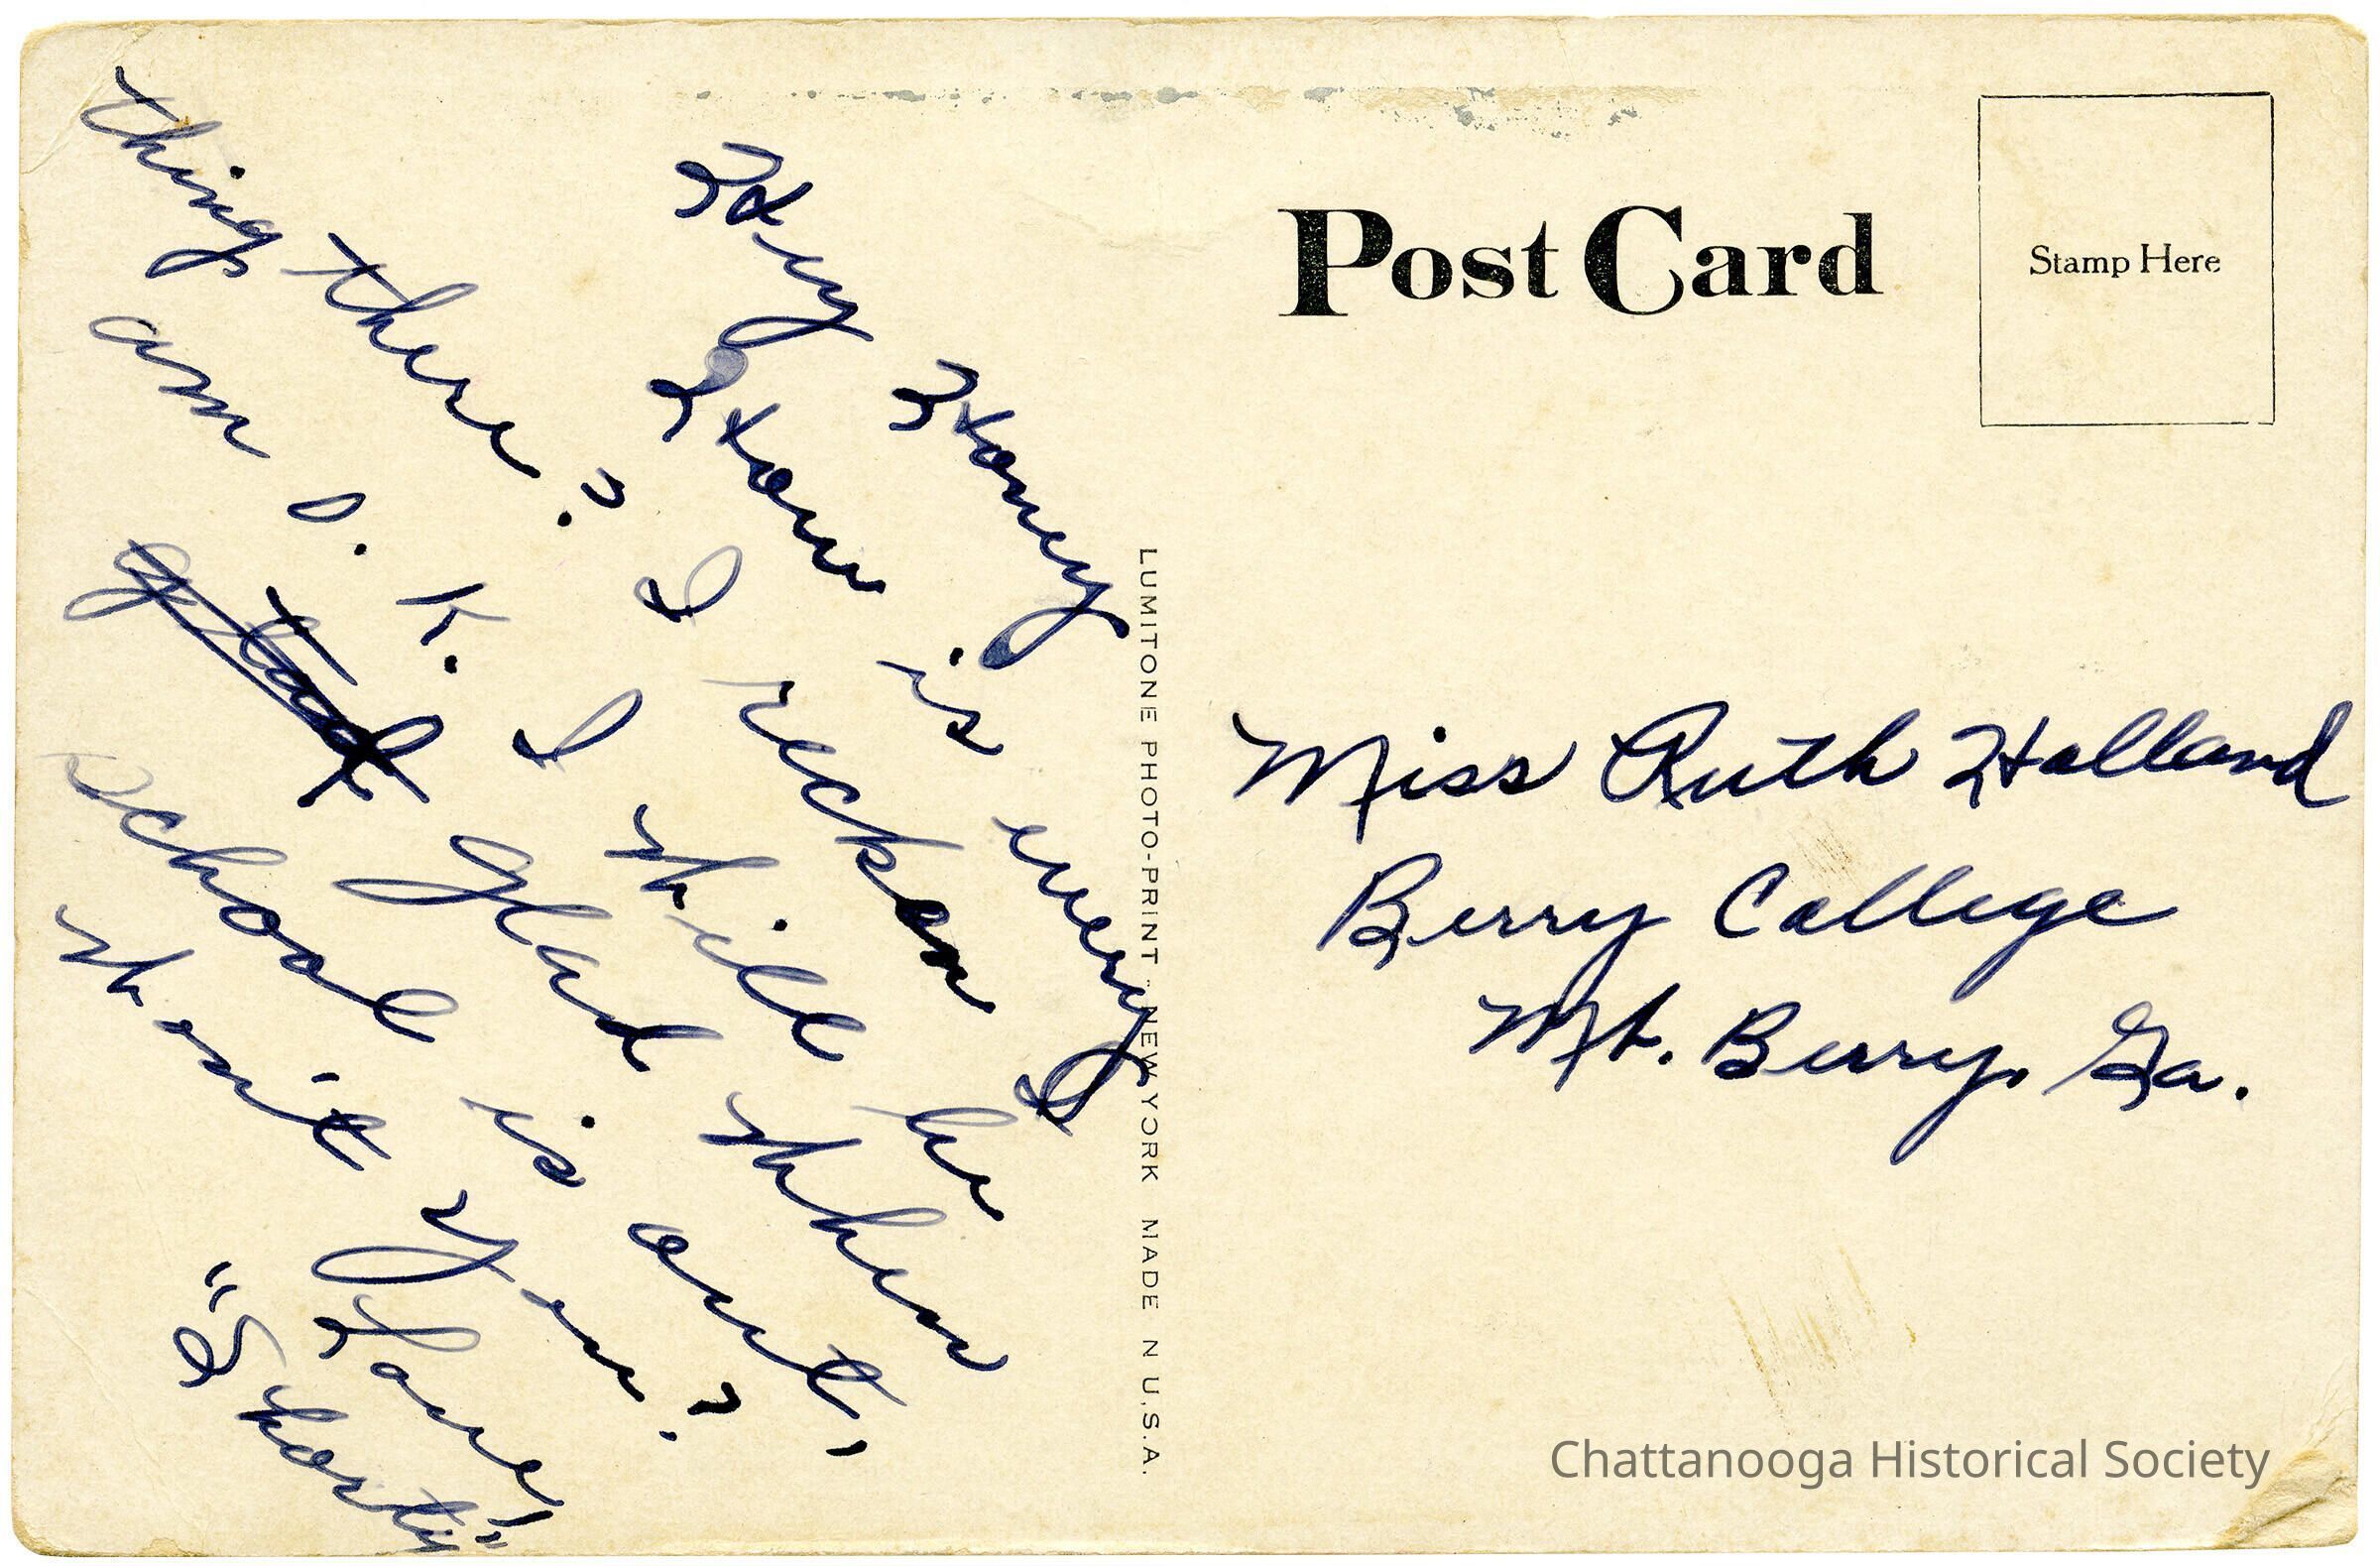 Hey Honey
How is every
thing there? I reckon I
am O. K. I will be
glad when
school is out,
Won't you?
Love,
"Shorty"
LUMITONE PHOTO-PRINT - NEW YORK MADE N U.S.A.
Post Card
Stamp Here
Miss Ruth Holland
Berry College
Mt. Berry, Ga.
Chattanooga Historical Society